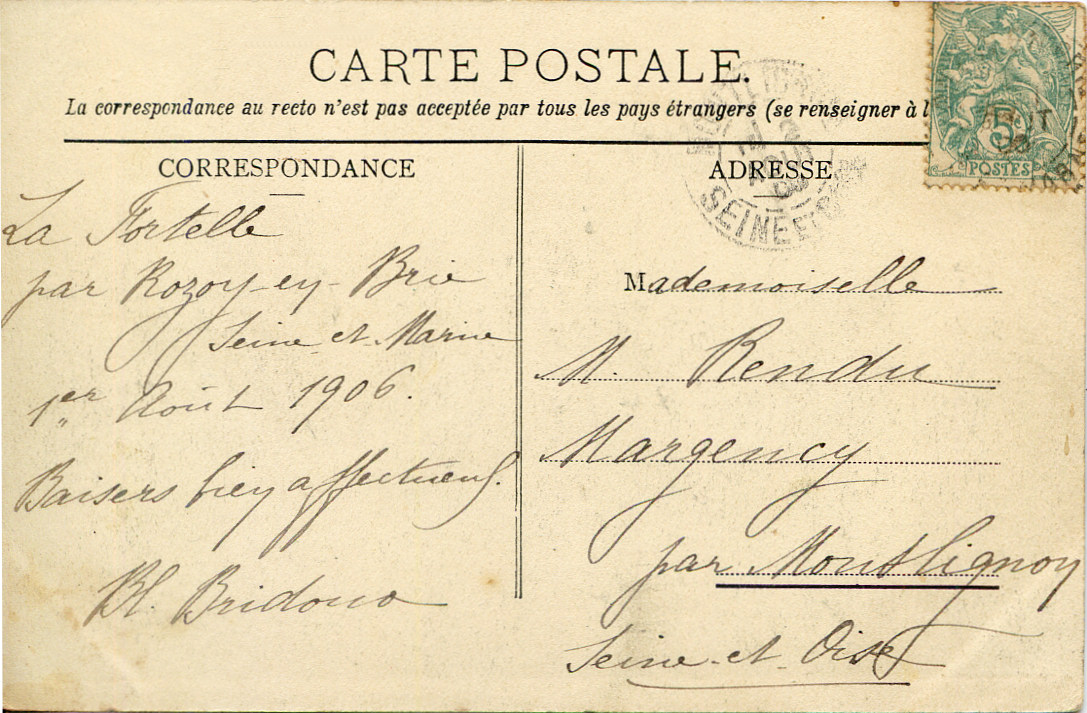 CARTE POSTALE.
La correspondance au recto n'est pas acceptée par tous les pays étrangers (se renseigner à l
CORRESPONDANCE
La Fortelle
par Rozoy-en-Brie
Seine-et-Marne
1er Août 1906.
Baisers bien affectueux.
Bl. Bridoux
ADRESSE
Mademoiselle
M. Rendu
Margency
par Montlignon
Seine-et-Oise
5
POSTES
SEINE ET